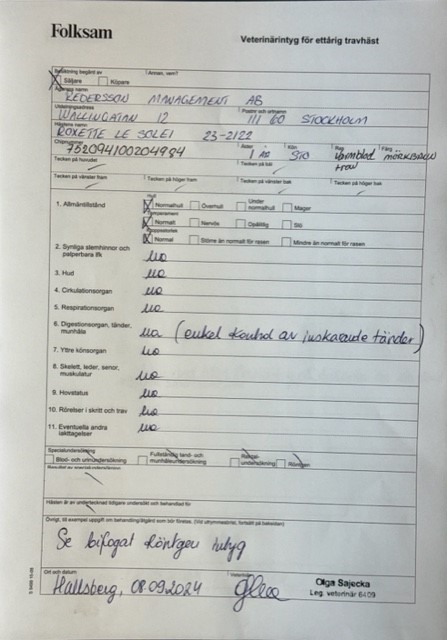 Folksam
Veterinärintyg för ettårig travhäst
Besiktning begärd av
Annan, vem?
Säljare Köpare
Ägarens namn
REDERSSON MANAGEMENT AB
Utdelningsadress Postnr och ortnamn
WALLINGATAN 12 111 60 STOCKHOLM
Hästens namn
ROXETTE LE SOLEI 23-2122
Chipnummer Ålder Kön Ras Färg
752094100204984 1 ÅR STO varmblod MÖRKBRUN
trav
Tecken på huvudet Tecken på bål
Tecken på vänster fram Tecken på höger fram Tecken på vänster bak Tecken på höger bak
Hull
1. Allmäntillstånd Normalhull Överhull Under normalhull Mager
Temperament
Normalt Nervös Opålitlig Stil
Normal Större än normalt för rasen Mindre än normalt för rasen
2. Synliga slemhinnor och palperbara lfk ua
3. Hud ua
4. Cirkulationsorgan ua
5. Respirationsorgan ua
6. Digestionsorgan, tänder, munhåla ua (enkel kontrol av inskarande tänder)
7. Yttre könsorgan ua
8. Skelett, leder, senor, muskulatur ua
9. Hovstatus ua
10. Rörelser i skritt och trav ua
11. Eventuella andra iakttagelser ua
Specialundersökning
Blod- och urinundersökning Fullständig tand- och munhåleundersökning Rektal-undersökning Röntgen
Resultat av specialundersökning
Hästen är av undertecknad tidigare undersökt och behandlad för
Övrigt, till exempel uppgift om behandling/åtgärd som bör företas. (Vid utrymmesbrist, fortsätt på baksidan)
Se bifogat Röntgen intyg
Ort och datum Veterinär
Hallsberg, 08.09.2024
Olga Sajecka
Leg. veterinär 6409